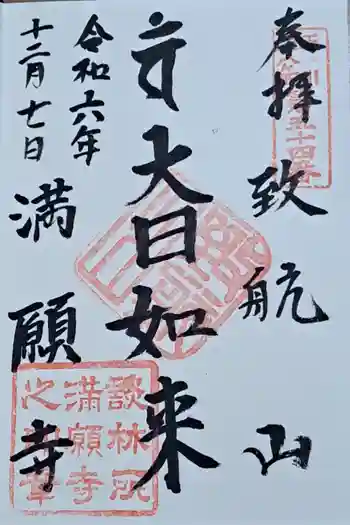 奉拝
致航山
大日如来
令和六年
十二月七日
満願寺
談林所
満願寺